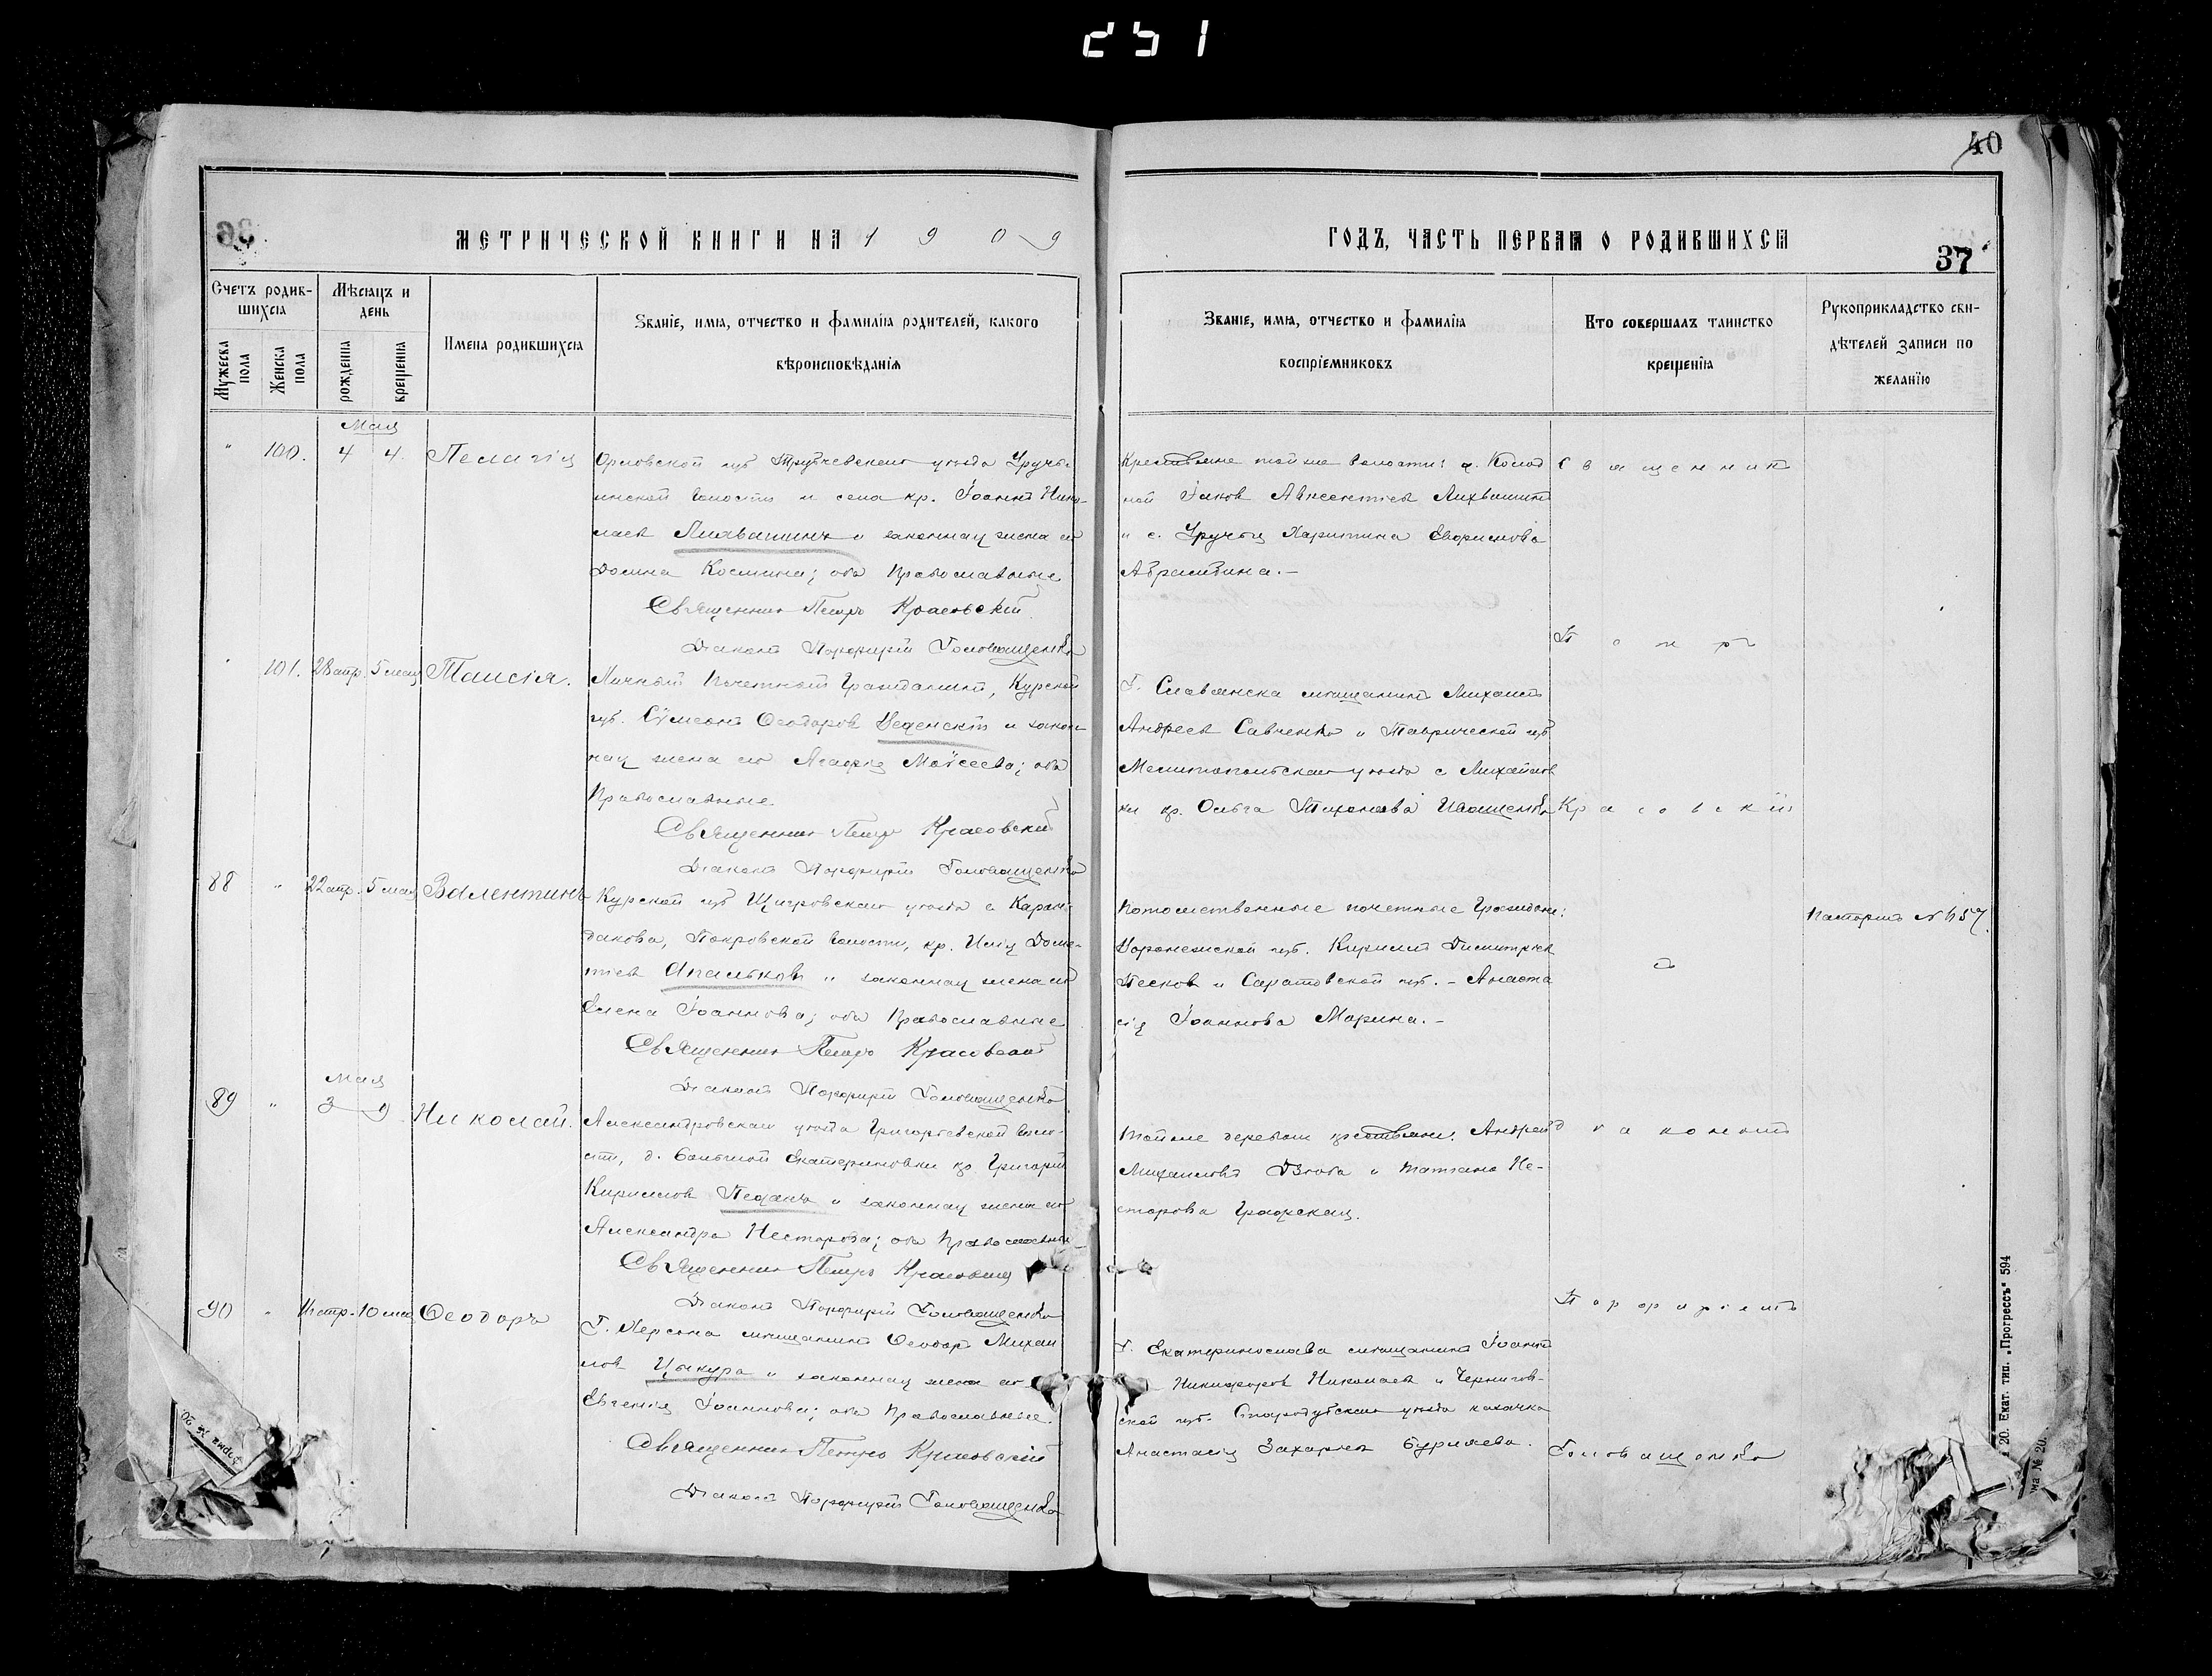 251
40
36
МЕТРИЧЕСКОЙ КНИГИ НА 1909
ГОДЪ, ЧАСТЬ ПЕРВАЯ О РОДИВШИХСЯ
37
Счетъ родив-
шихся
Мѣсяцъ и
день
Мужеска пола
Женска пола
рожденiя
крещенiя
Имена родившихся
Званiе, имя, отчество и фамилiя родителей, какого
вѣроисповѣданiя
Званiе, имя, отчество и фамилiя
воспрiемниковъ
Кто совершалъ таинство
крещенiя
Рукоприкладство сви-
дѣтелей записи по
желанiю
Мая
" 100. 4 4. Пелагiя
Орловской губ Трубчевскаго уѣзда Уручь-
инской волости и села кр. Iоаннъ Нико-
лаевъ Лихвашинъ и законная жена его
Домна Космина; оба Православные
Священникъ Петръ Красовскiй
Дiаконъ Порфирiй Головащенко
Крестьяне той же волости: д. Колод
ной Iаковъ Авксентiевъ Лихвашинъ
и с. Уручья Харитина Евфимова
Абрамкина.-
Священникъ
Петръ
Красовскiй
101. 28 апр. 5 мая Таисiя.
Личный Почетный Гражданинъ, Курской
губ. Сѵмеонъ Ѳеодоровъ Веденскiй и закон-
ная жена его Агафiя Моѵсеева; оба
Православные
Священникъ Петръ Красовскiй
Дiаконъ Порфирiй Головащенко
Г. Славянска мѣщанинъ Михаилъ
Андреевъ Савченко и Таврической губ
Мелитопольскаго уѣзда с Михайлов
ки кр. Ольга Тихонова Иващенко
88 " 22 апр. 5 мая Валентинъ
Курской губ Щигровскаго уѣзда с Каран-
дакова, Покровской волости, кр. Илiя Доме-
тiевъ Апальковъ и законная жена его
Елена Iоаннова; оба Православные
Священникъ Петръ Красовскiй
Дiаконъ Порфирiй Головащенко
Потомственные почетные Граждане:
Воронежской губ. Кириллъ Димитрiев
Песковъ и Саратовской губ. - Анаста
сiя Iоаннова Марина.-
съ
Мая
89 " 3 9 Николай.
Александровскаго уѣзда Григорьевской воло-
сти, д. Большой Екатериновки кр. Григорiй
Кирилловъ Педанъ и законная жена его
Александра Несторова; оба Православные
Священникъ Петръ Красовскiй
Дiаконъ Порфирiй Головащенко
Той же деревни крестьяне: Андрей
Михаиловъ Дзюба и Татiана Не-
сторова Графская.
Дiакономъ
Порфирiемъ
Головащенко
90 " 10 мая Ѳеодоръ
Г. Херсона мѣщанинъ Ѳеодоръ Михаи
ловъ Цыкура и законная жена его
Евгенiя Iоаннова; оба Православные.
Священникъ Петръ Красовскiй
Дiаконъ Порфирiй Головащенко
Г. Екатеринослава мѣщанинъ Iоаннъ
Никифоровъ Николаевъ и Чернигов-
ской губ. Стародубскаго уѣзда казачка
Анастасiя Захарiева Буряева.
20. Екат. тип. „Прогрессъ“ 594
ма № 20.
Форма № 20.